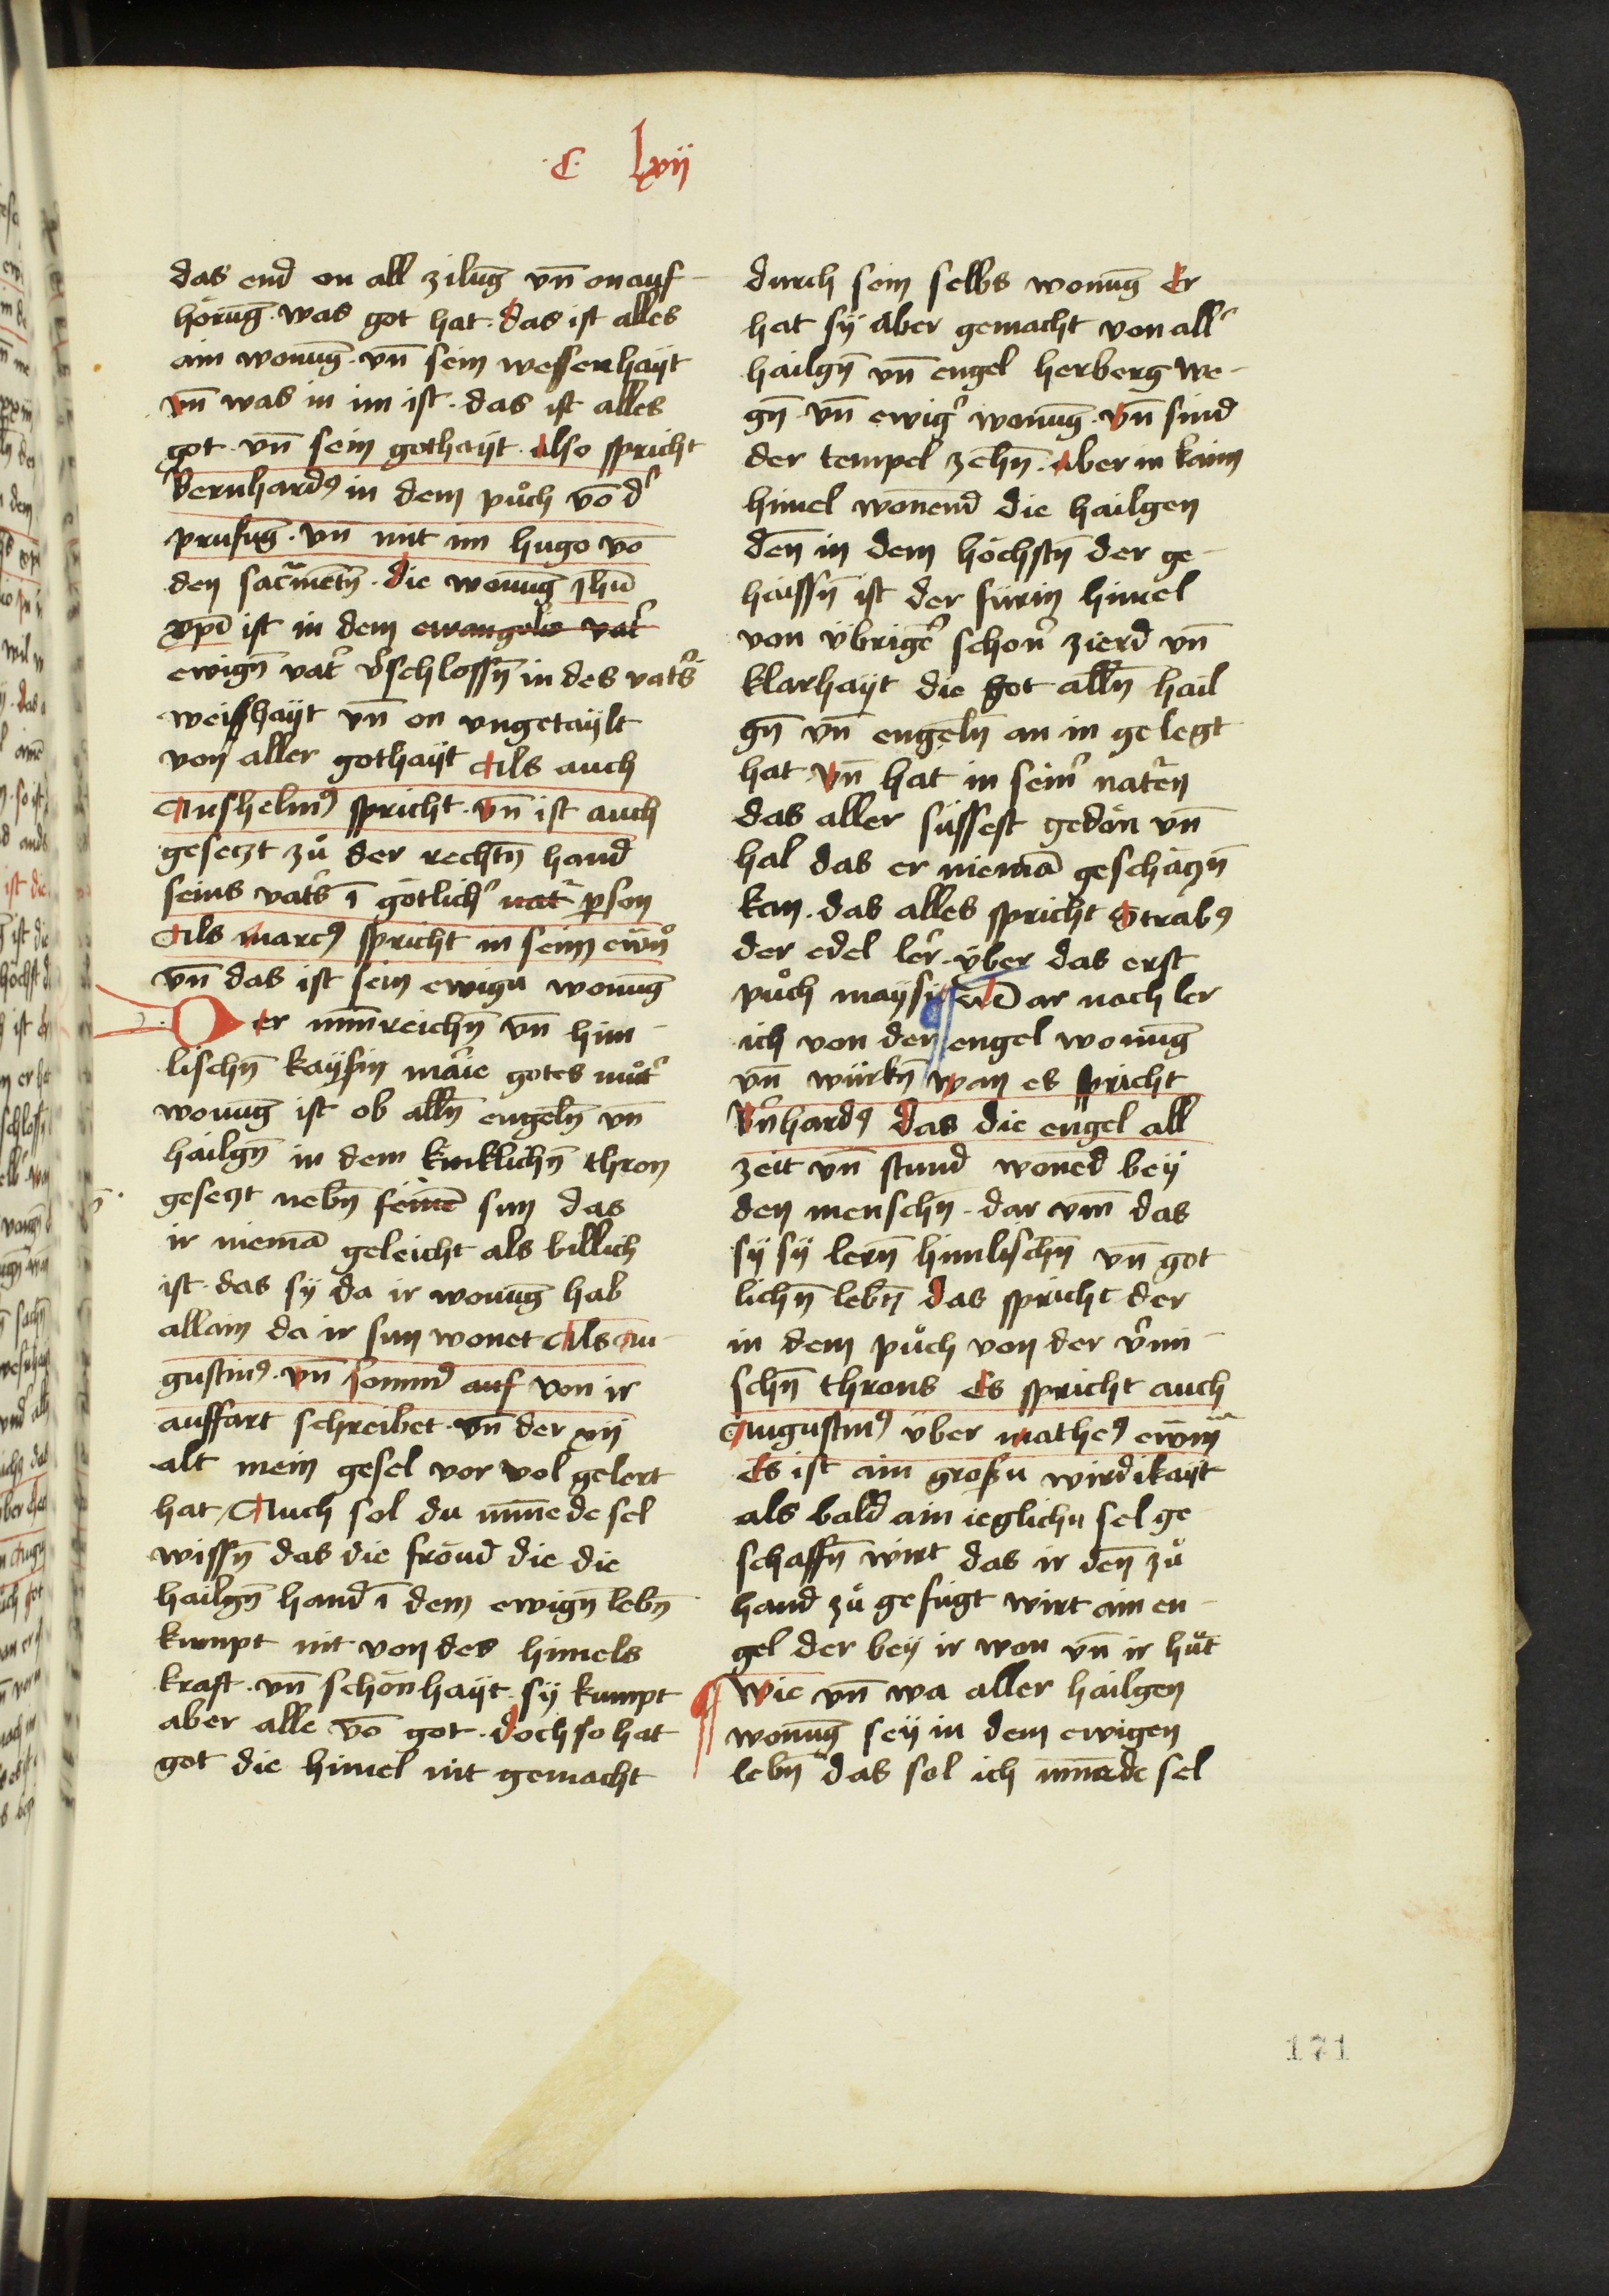 ·C· lxvij
das end on all zilūg vn̄ on auf-
hörūg. was got hat. das ist alles
ain wonūg. vn̄ sein wessenhayt
vn̄ was in im ist. das ist alles
got. vn̄ sein gothayt. also spricht
Bernhardꝰ in dem půch vō d͛
prufūg. vn̄ mit im hugo vō
den sacᵃmētn̄. die wonūg jhū
xp̄i ist in dem ewangelio vat͛
ewign̄ vat͛ v͛schlossn̄ in des vat͛s
weishayt vn̄ on vngetaylt
von aller gothayt Als auch
Anshelmꝰ spricht. vn̄ ist auch
gesetzt zů der rechtn̄ hand
seins vat͛s ī götlich͛ nat͛ ꝑson
Als marcꝰ spricht in seim ew̄no
vn̄ das ist sein ewigu wonūg
Der min̄reichn̄ vn̄ him-
lischn̄ kaysin mar͛ie gotes můt͛
wonūg ist ob alln̄ engeln̄ vn̄
hailgn̄ in dem kinklichn̄ thron
gesetzt nebn̄ seinē sun das
ir niemā geleicht als billich
ist. das sy da ir wonūg hab
allain da ir sun wonet Als Au-
gustinꝰ. vn̄ somnꝰ auf von ir
auffart schreibet. vn̄ der xij
alt mein gesel vor vol gelert
hat / Auch sol du min̄ede sel
wissn̄ das die fröud die die
hailgn̄ hand ī dem ewign̄ lebn̄
kumpt nit von des himels
kraft. vn̄ schönhayt. sy kumpt
aber alle vō got. doch so hat
got die himel nit gemacht
durch sein selbs wonūg Er
hat sy aber gemacht von all͛
hailgn̄ vn̄ engel herberg we-
gn̄. vn̄ ewig͛ wonūg. vn̄ sind
der tempel zehn̄. aber in kaim
himel wonend die hailgen
den̄ in dem höchstn̄ der ge-
haissn̄ ist der fürin himel
von übrigē͛ schon͛ zierd vn̄
klarhayt die got alln̄ hail
gn̄ vn̄ engeln̄ an in gelegt
hat vn̄ hat in sein͛ nat͛en
das aller süssest gedön vn̄
hal das er niemā geschätzn̄
kan. das alles spricht Strabꝰ
der edel ler͛. über das erst
půch maysi Dar nach ler
ich von den engel wonūg
vn̄ würkn̄ wan es spricht
B͛nhardꝰ das die engel all
zeit vn̄ stund woned bey
den menschn̄. dar vm̄ das
sy sy lern̄ himlischn̄ vn̄ got
lichn̄ lebn̄ das spricht der
in dem půch von der v͛nū-
schn̄ throns Es spricht auch
Augustinꝰ über matheꝰ ew̄m
Es ist ain großu wirdikayt
als bald ain ieglichu sel ge
schaffn̄ wirt das ir den̄ zů
hand zů gefügt wirt ain en-
gel der bey ir won vn̄ ir hůt
wie vn̄ wa aller hailgen
wonūg sey in dem ewigen
lebn̄ das sol ich min̄ede sel
171